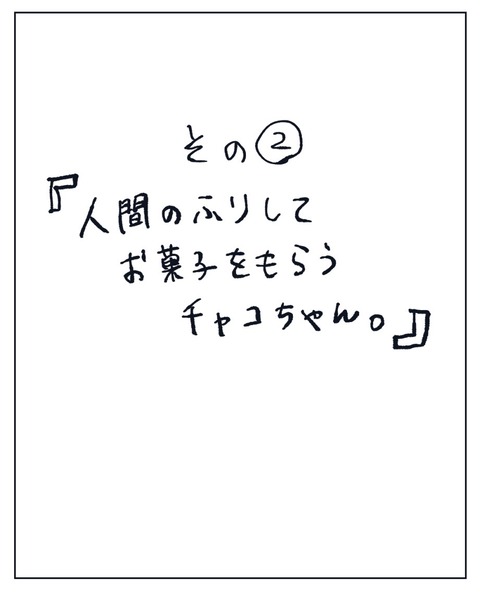 その②
『人間のふりして
お菓子をもらう
チャコちゃん。』